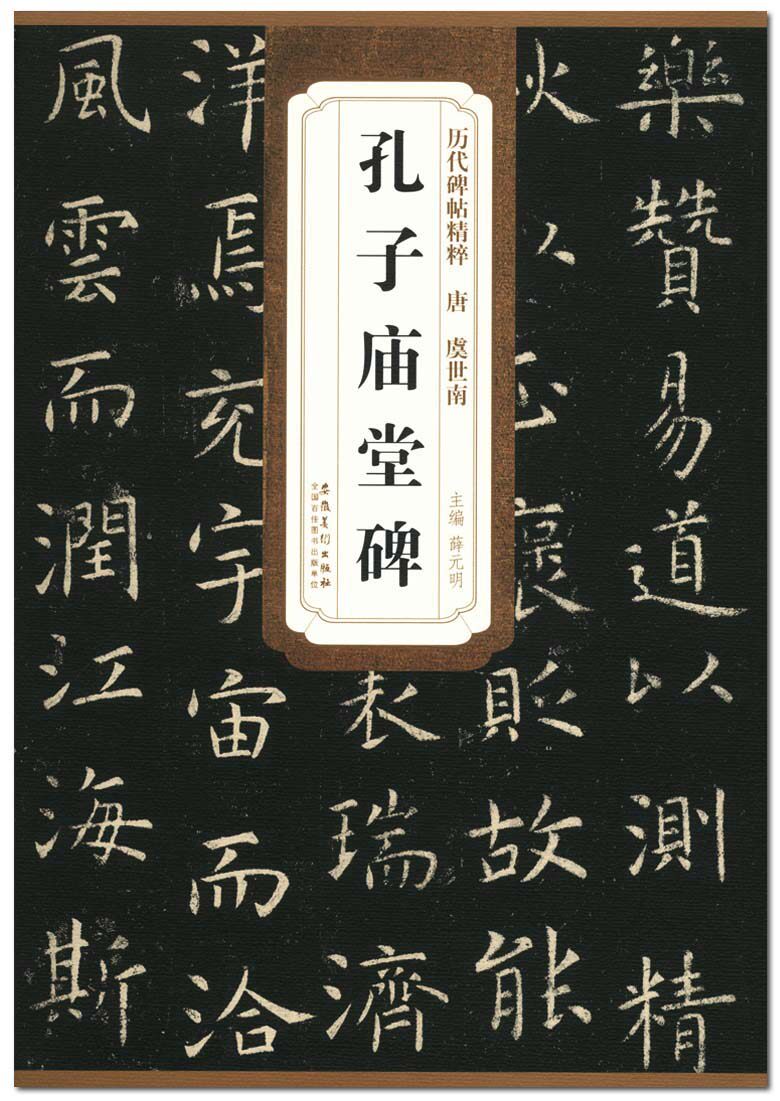 历代碑帖精粹 唐 虞世南
主编 薛元明
孔子庙堂碑
安徽美術出版社
全国百佳图书出版单位
樂贊易道以測精
褒貶故能
表瑞濟
洋焉充宇宙而洽
風雲而潤江海斯